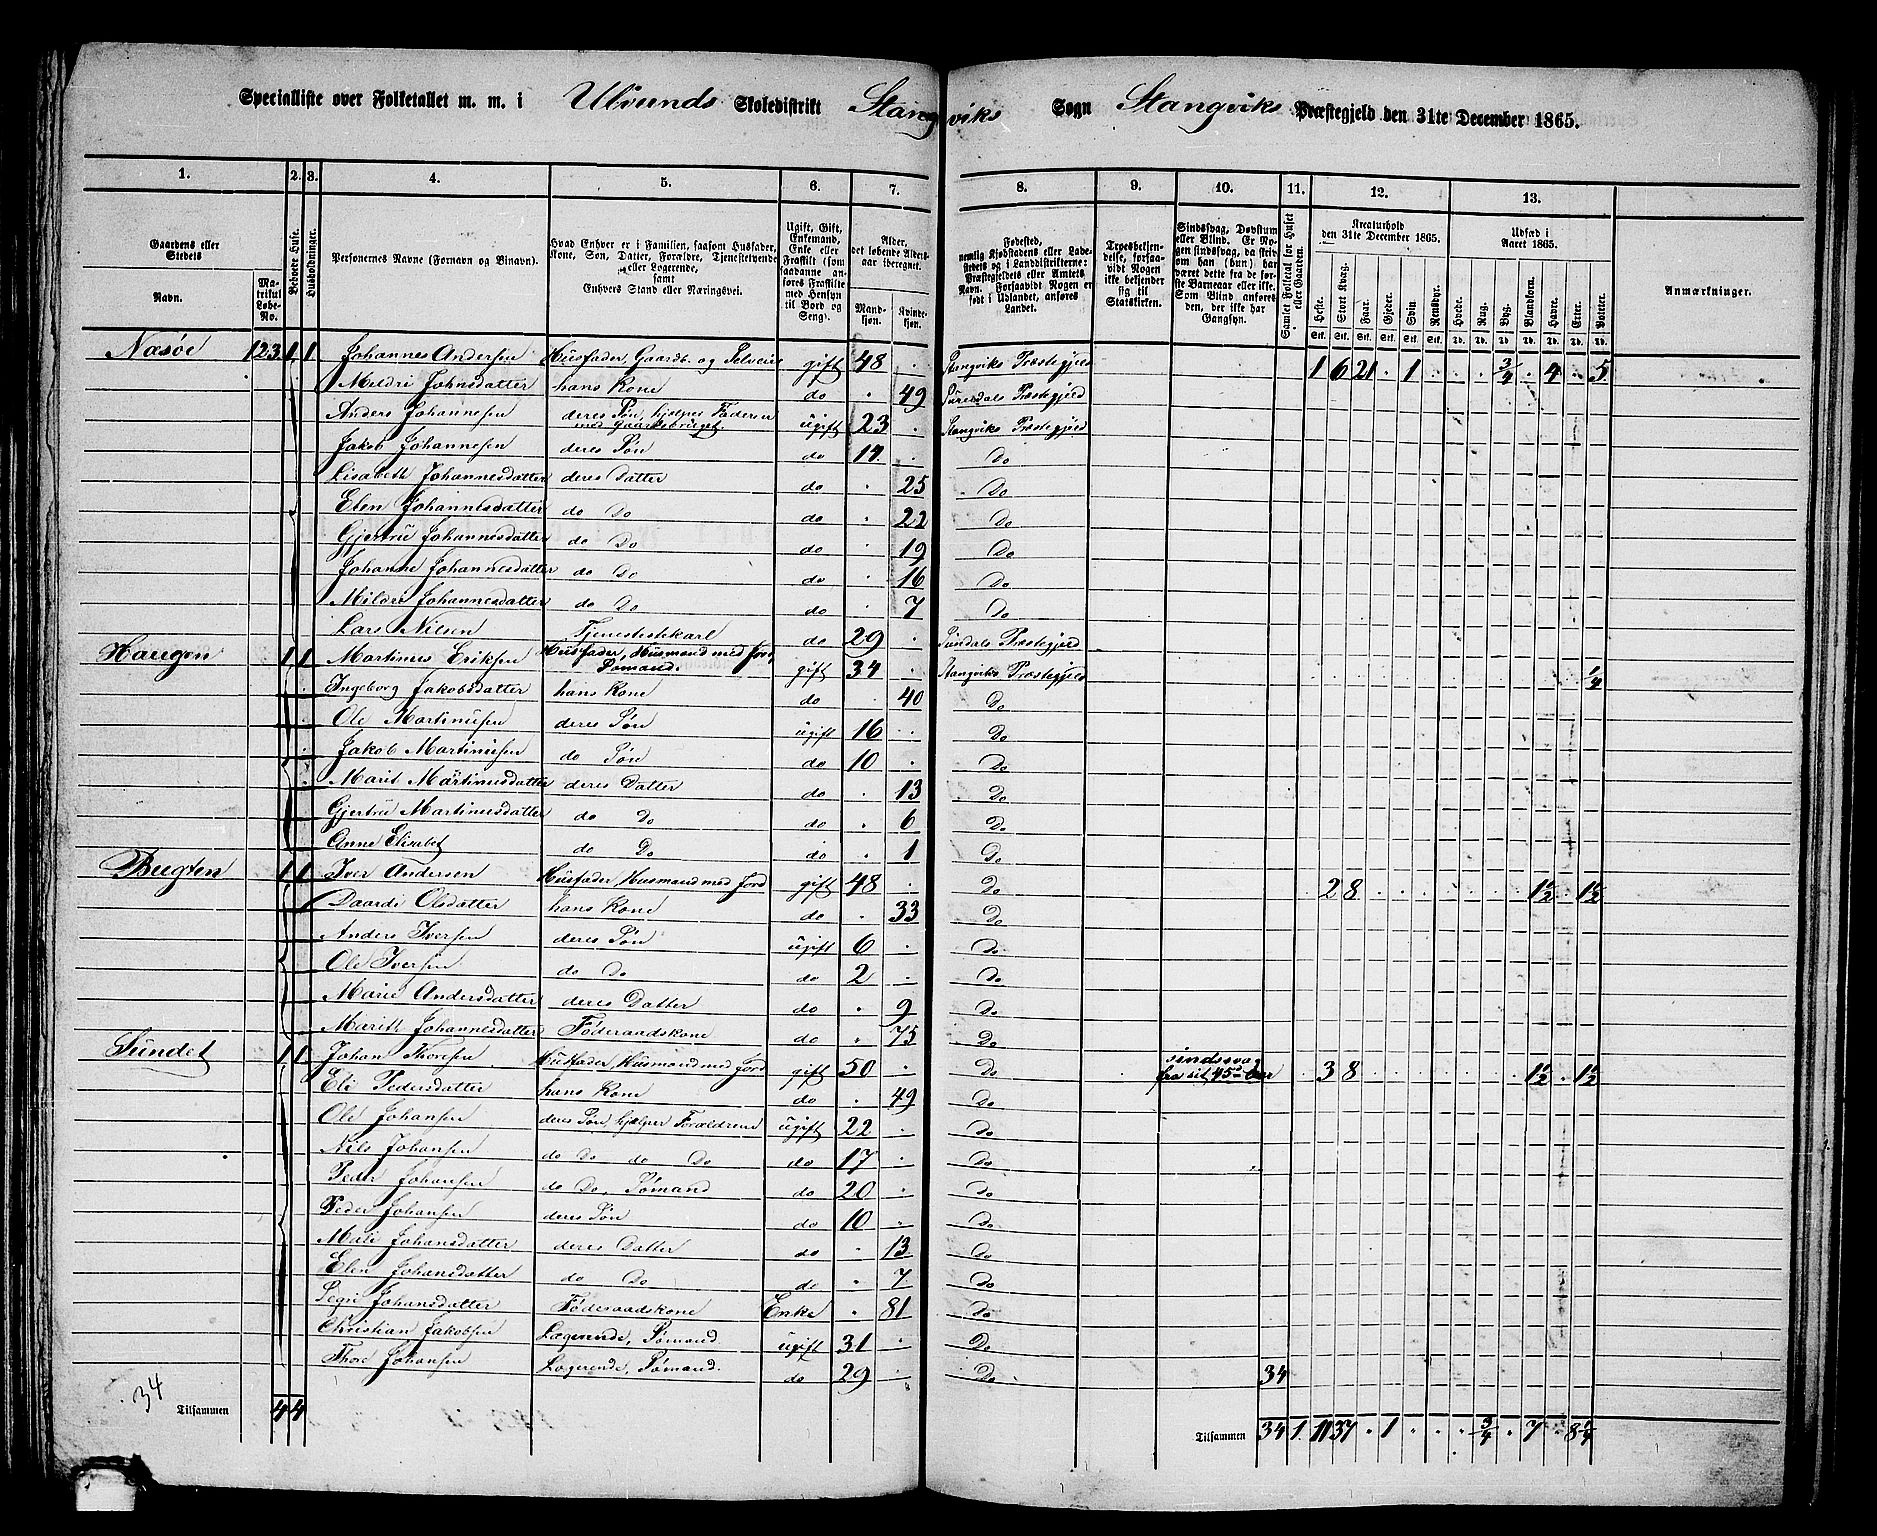 Specialliste over Folketallet m. m. i Ulvunds Skoledistrikt Stangviks Sogn Stangviks Præstegjeld den 31te December 1865.
1. 2. 3. 4. 5. 6. 7. 8. 9. 10. 11. 12. 13.
Gaardens eller Stedets Navn. Matrikul Løbe-No. Beboede Huse. Husholdninger. Personernes Navne (Fornavn og Binavn). Hvad Enhver er i Familien, saasom Husfader, Kone, Søn, Datter, Forældre, Tjenestetyende eller Logerende, samt Enhvers Stand eller Næringsvei. Ugift, Gift, Enkemand, Enke eller Fraskilt (som saadanne anføres Fraskilte med Hensyn til Bord og Seng). Alder, det løbende Aldersaar iberegnet. Mandkjøn. Kvindekjøn. Fødested, nemlig Kjøbstadens eller Ladestedets og i Landdistrikterne: Præstegjeldets eller Amtets Navn. Forsaavidt Nogen er født i Udlandet, anføres Landet. Troesbekjendelse, forsaavidt Nogen ikke bekjender sig til Statskirken. Sindssvag, Døvstum eller Blind. Er Nogen sindssvag, da skrives, om han (hun) har været dette fra de første Barneaar eller ikke. Som Blind anføres den, der ikke har Gangsyn. Samlet Folketal for Huset eller Gaarden. Kreaturhold den 31te December 1865. Heste. Stort Kvæg. Faar. Gjeder. Svin. Rensdyr. Udsæd i Aaret 1865. Hvede. Rug. Byg. Blandkorn. Havre. Erter. Poteter. Anmærkninger.
Næsøe 123 1 1 Johannes Andersen Husfader, Gaardb. og Selveier gift 48 Stangviks Præstegjeld 1 6 21 . 1 . . . 3/4 . 4 . 5
Mildri Johnsdatter hans Kone do 49 Surendals Præstegjeld
Anders Johannesen deres Søn, hjelper Faderen med Gaardsbruget ugift 23 Stangviks Præstegjeld
Jakob Johannesen deres Søn do 14 Do
Lisabeth Johannesdatter deres Datter do 25 Do
Elen Johannesdatter do Do do 22 Do
Gjertru Johannesdatter do Do do 19 Do
Johanne Johannesdatter do Do do 16 Do
Mildri Johannesdatter do Do do 7 Do
Lars Nilsen Tjenestekarl do 29 Sundals Præstegjeld
Haugen 1 1 Martinus Eriksen Husfader, Husmand med Jord, Sømand. gift 34 Stangviks Præstegjeld 1/4
Ingeborg Jakobsdatter hans Kone do 40 Do
Ole Martinusen deres Søn ugift 16 Do
Jakob Martinusen do Søn do 10 Do
Marit Martinusdatter deres Datter do 13 Do
Gjertru Martinusdatter do Do do 6 Do
Anne Elisabet do Do do 1 Do
Bugten 1 1 Iver Andersen Husfader, Husmand med Jord gift 48 Do 2 8 1 1/2 1 1/2
Daardi Olsdatter hans Kone do 33 Do
Anders Iversen deres Søn ugift 6 Do
Ole Iversen do Do do 2 Do
Marie Andersdatter deres Datter do 9 Do
Marith Johannesdatter Føderaadskone do 75 Do
Sundet 1 1 Johan Thoresen Husfader, Husmand med Jord gift 50 Do sindssvag fra sit 45de Aar 3 8 1 1/2 1 1/2
Eli Pedersdatter hans Kone do 49 Do
Ole Johansen deres Søn, hjælper Forældrene ugift 22 Do
Nils Johansen do Do do Do do 17 Do
Peder Johansen do Do, Sømand do 20 Do
Peder Johansen deres Søn do 10 Do
Mali Johansdatter deres Datter do 13 Do
Elen Johansdatter do Do do 7 Do
Segri Johansdatter Føderaadskone Enke 81 Do
Christian Jakobsen Logerende, Sømand ugift 31 Do
Thore Johansen Logerende, Sømand. do 29 Do 34
34
Tilsammen 4 4 Tilsammen 34 1 11 37 . 1 . . . 3/4 . 7 . 8 1/4